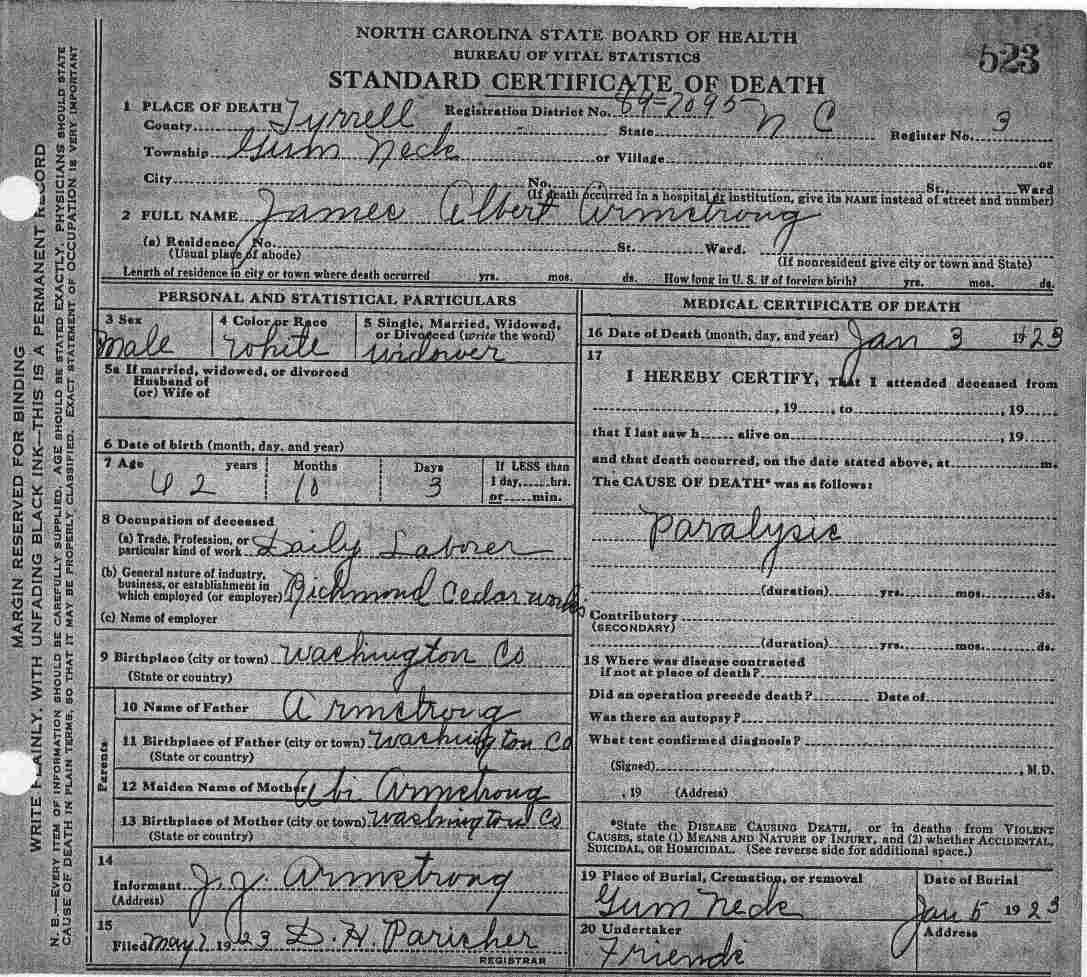 NORTH CAROLINA STATE BOARD OF HEALTH
BUREAU OF VITAL STATISTICS
STANDARD CERTIFICATE OF DEATH
523
1 PLACE OF DEATH Registration District No. 89-7095
County Tyrrell State N C Register No. 3
Township Gum Neck or Village or
City No. St., Ward
(If death occurred in a hospital or institution, give its NAME instead of street and number)
2 FULL NAME James Albert Armstrong
(a) Residence, No. St. Ward.
(Usual place of abode) (If nonresident give city or town and State)
Length of residence in city or town where death occurred yrs. mos. ds. How long in U. S. if of foreign birth? yrs. mos. ds.
PERSONAL AND STATISTICAL PARTICULARS
3 Sex 4 Color or Race 5 Single, Married, Widowed,
or Divorced (write the word)
Male White Widower
5a If married, widowed, or divorced
Husband of
(or) Wife of
6 Date of birth (month, day, and year)
7 Age years Months Days If LESS than
1 day, hrs.
or min.
62 10 3
8 Occupation of deceased
(a) Trade, Profession, or
particular kind of work Daily Laborer
(b) General nature of industry,
business, or establishment in
which employed (or employer) Richmond Cedar works
(c) Name of employer
9 Birthplace (city or town) Washington Co
(State or country)
Parents
10 Name of Father Armstrong
11 Birthplace of Father (city or town) Washington Co
(State or country)
12 Maiden Name of Mother Abi Armstrong
13 Birthplace of Mother (city or town) Washington Co
(State or country)
14
Informant J. J. Armstrong
(Address)
15
Filed May 7 1923 D. H. Parisher
REGISTRAR
MEDICAL CERTIFICATE OF DEATH
16 Date of Death (month, day, and year) Jan 3 1923
17
I HEREBY CERTIFY, That I attended deceased from
, 19 , to , 19
that I last saw h alive on , 19
and that death occurred, on the date stated above, at m.
The CAUSE OF DEATH* was as follows:
Paralysis
(duration) yrs. mos. ds.
Contributory
(SECONDARY)
(duration) yrs. mos. ds.
18 Where was disease contracted
if not at place of death?
Did an operation precede death? Date of
Was there an autopsy?
What test confirmed diagnosis?
(Signed) , M.D.
, 19 (Address)
*State the DISEASE CAUSING DEATH, or in deaths from VIOLENT
CAUSES, state (1) MEANS AND NATURE OF INJURY, and (2) whether ACCIDENTAL,
SUICIDAL, OR HOMICIDAL. (See reverse side for additional space.)
19 Place of Burial, Cremation, or removal Date of Burial
Gum Neck Jan 5 1923
20 Undertaker Address
Friends
MARGIN RESERVED FOR BINDING
WRITE PLAINLY, WITH UNFADING BLACK INK—THIS IS A PERMANENT RECORD
N. B.—EVERY ITEM OF INFORMATION SHOULD BE CAREFULLY SUPPLIED. AGE SHOULD BE STATED EXACTLY. PHYSICIANS SHOULD STATE
CAUSE OF DEATH IN PLAIN TERMS, SO THAT IT MAY BE PROPERLY CLASSIFIED. EXACT STATEMENT OF OCCUPATION IS VERY IMPORTANT